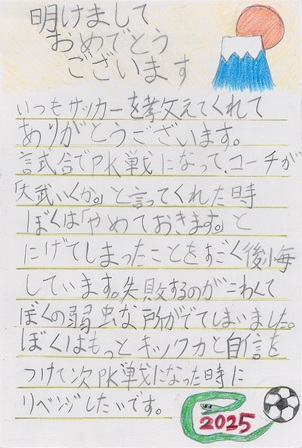 明けまして
おめでとう
ございます
いつもサッカーを教えてくれて
ありがとうございます。
試合でPK戦になって、コーチが
「大武いくか。」と言ってくれた時
ぼくは「やめておきます。」と
にげてしまったことをすごく後悔
しています。失敗するのがこわくて
ぼくの弱虫な所がでてしまいました。
ぼくはもっとキックカと自信を
つけて次PK戦になった時に
リベンジしたいです。
2025